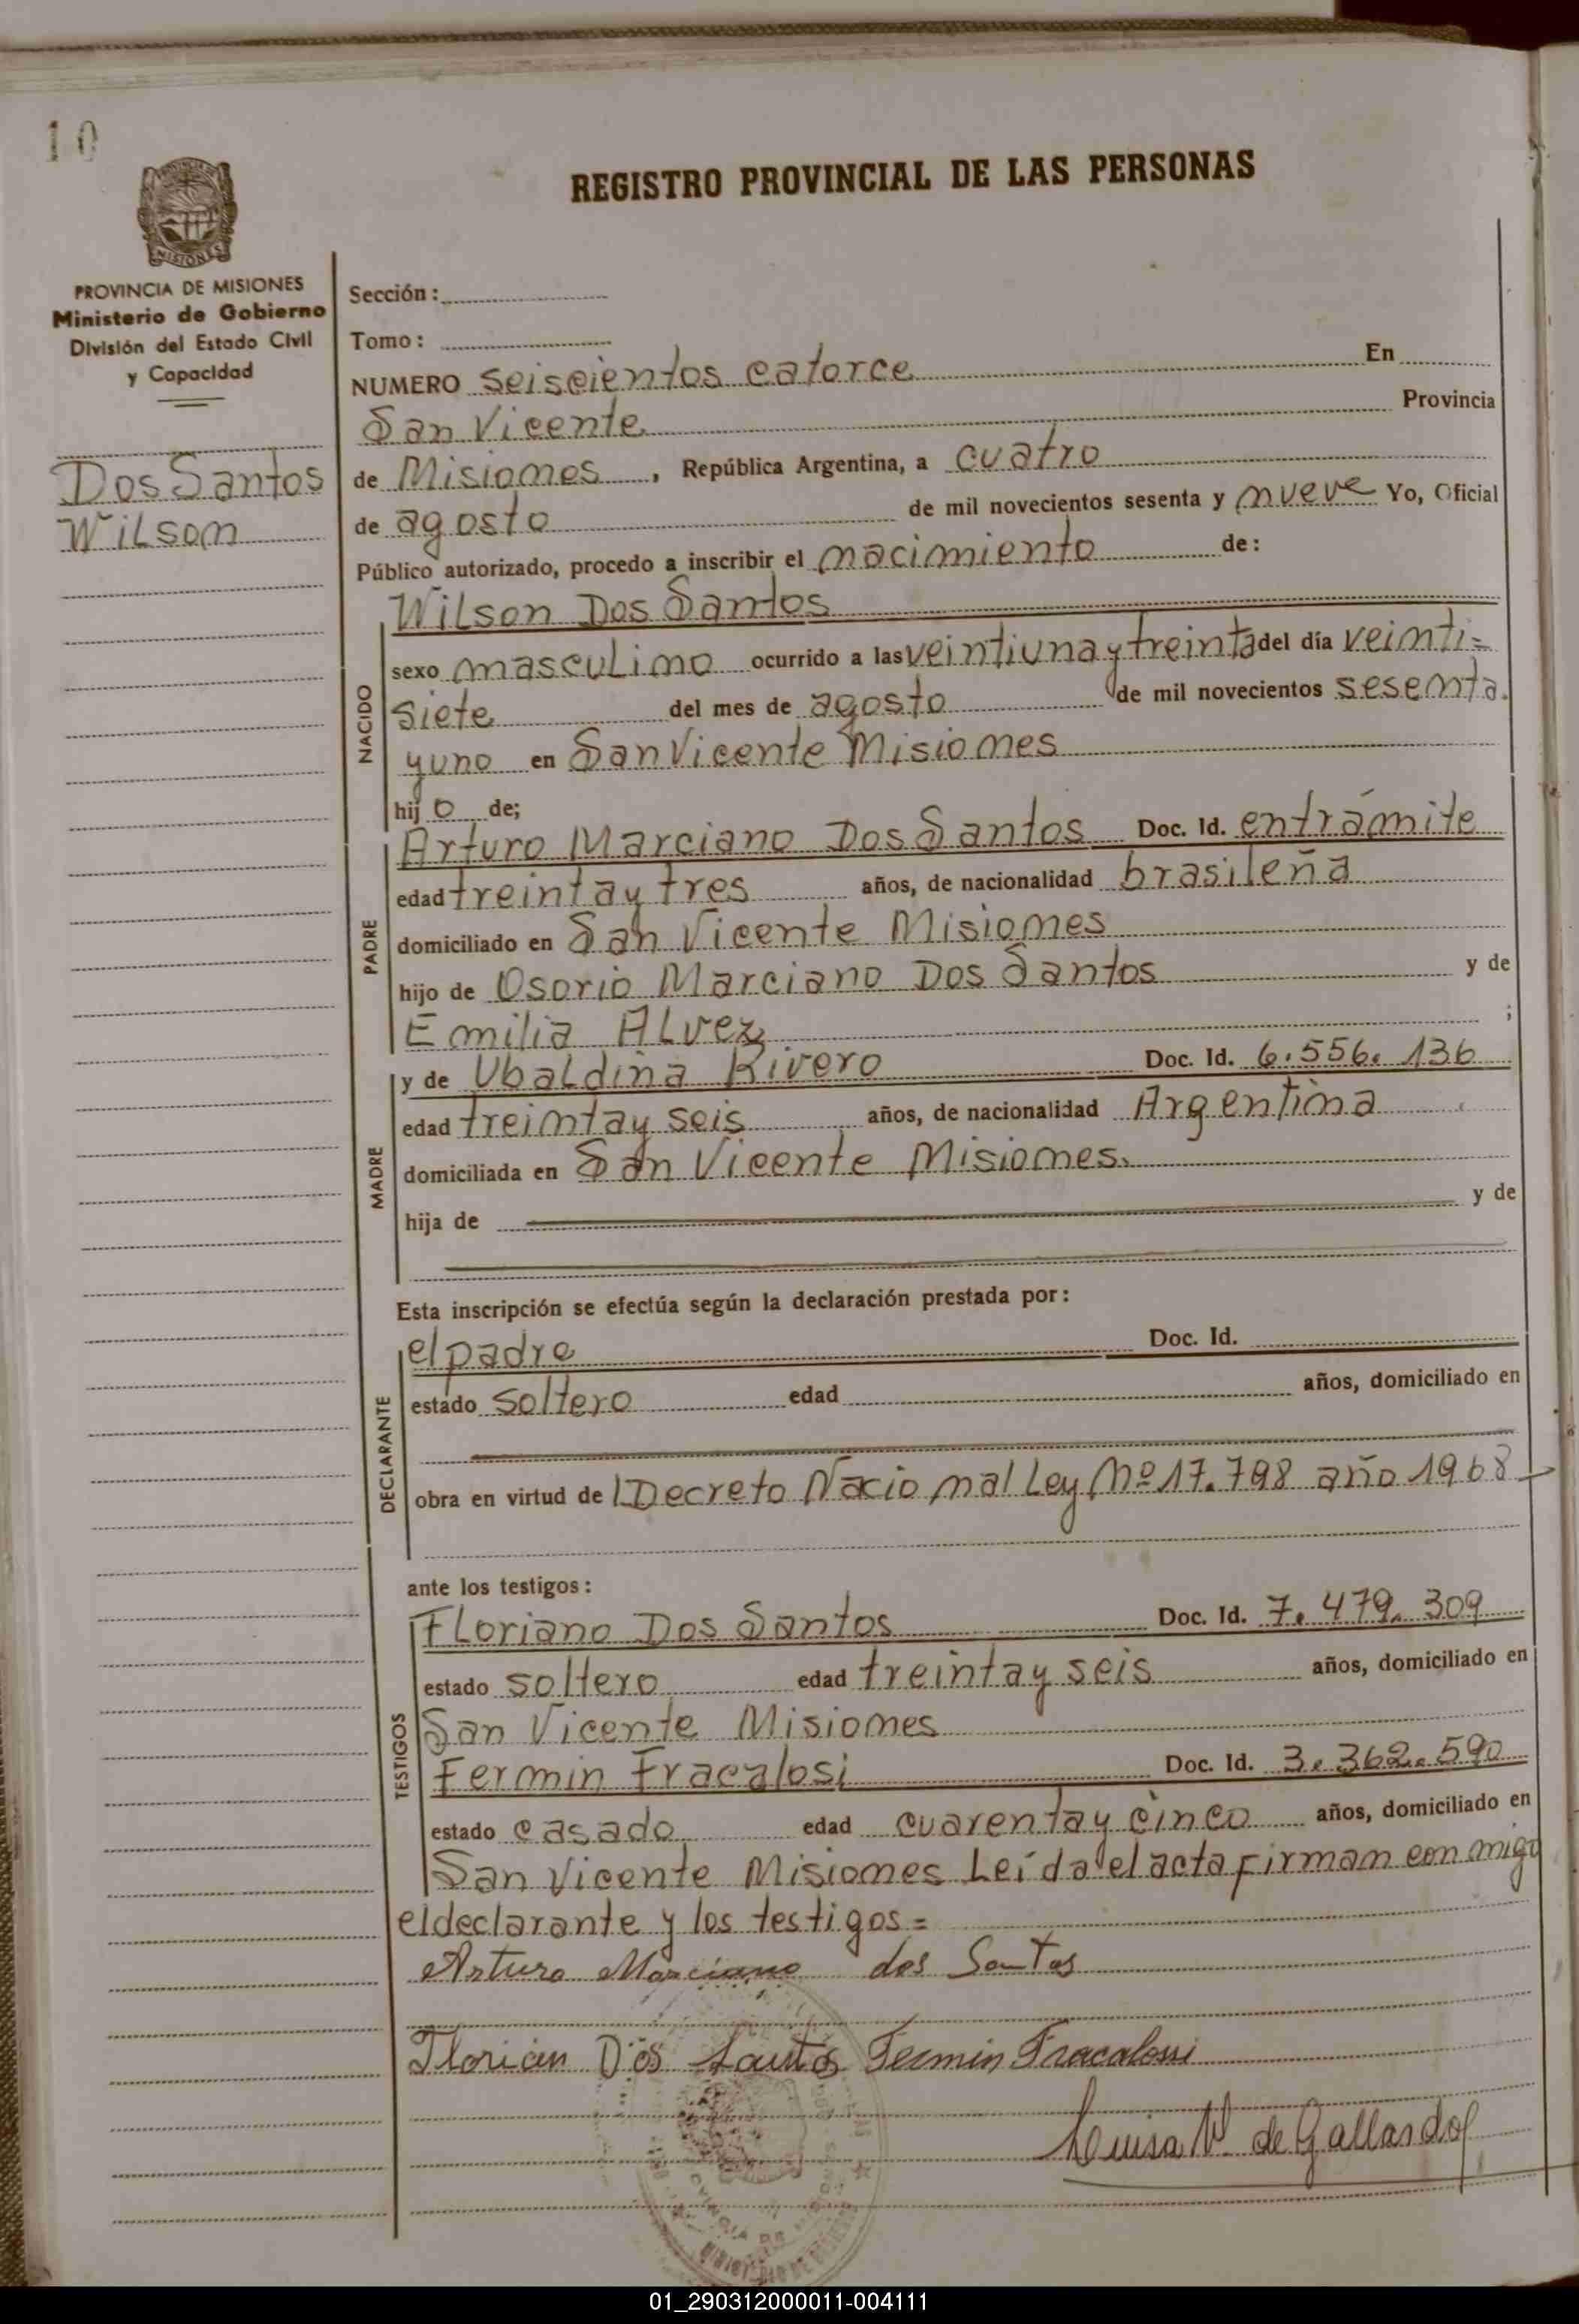 10
REGISTRO PROVINCIAL DE LAS PERSONAS
MISIONES
PROVINCIA DE MISIONES
Ministerio de Gobierno
División del Estado Civil
y Capacidad
Dos Santos
Wilson
Sección:
Tomo:
NUMERO seiscientos catorce En
San Vicente Provincia
de Misiones, República Argentina, a cuatro
de agosto de mil novecientos sesenta y nueve Yo, Oficial
Público autorizado, procedo a inscribir el nacimiento de:
NACIDO
Wilson Dos Santos
sexo masculino ocurrido a las veintiuna y treinta del día veinti=
siete del mes de agosto de mil novecientos sesenta
y uno en San Vicente Misiones
hijo de;
PADRE
Arturo Marciano Dos Santos Doc. Id. en trámite
edad treinta y tres años, de nacionalidad brasileña
domiciliado en San Vicente Misiones
hijo de Osorio Marciano Dos Santos y de
Emilia Alvez ;
MADRE
y de Ubaldina Rivero Doc. Id. 6.556.136
edad treinta y seis años, de nacionalidad Argentina
domiciliada en San Vicente Misiones.
hija de y de
Esta inscripción se efectúa según la declaración prestada por:
DECLARANTE
el padre Doc. Id.
estado soltero edad años, domiciliado en
obra en virtud de Decreto Nacional Ley Nº 17.798 año 1968
ante los testigos:
TESTIGOS
Floriano Dos Santos Doc. Id. 7.479.309
estado soltero edad treinta y seis años, domiciliado en
San Vicente Misiones
Fermin Fracalosi Doc. Id. 3.362.590
estado casado edad cuarenta y cinco años, domiciliado en
San Vicente Misiones Leída el acta firman conmigo
el declarante y los testigos=
Arturo Marciano dos Santos
Florian Dos Santos Fermin Fracalossi
Luisa V. de Gallardo
01_290312000011-004111